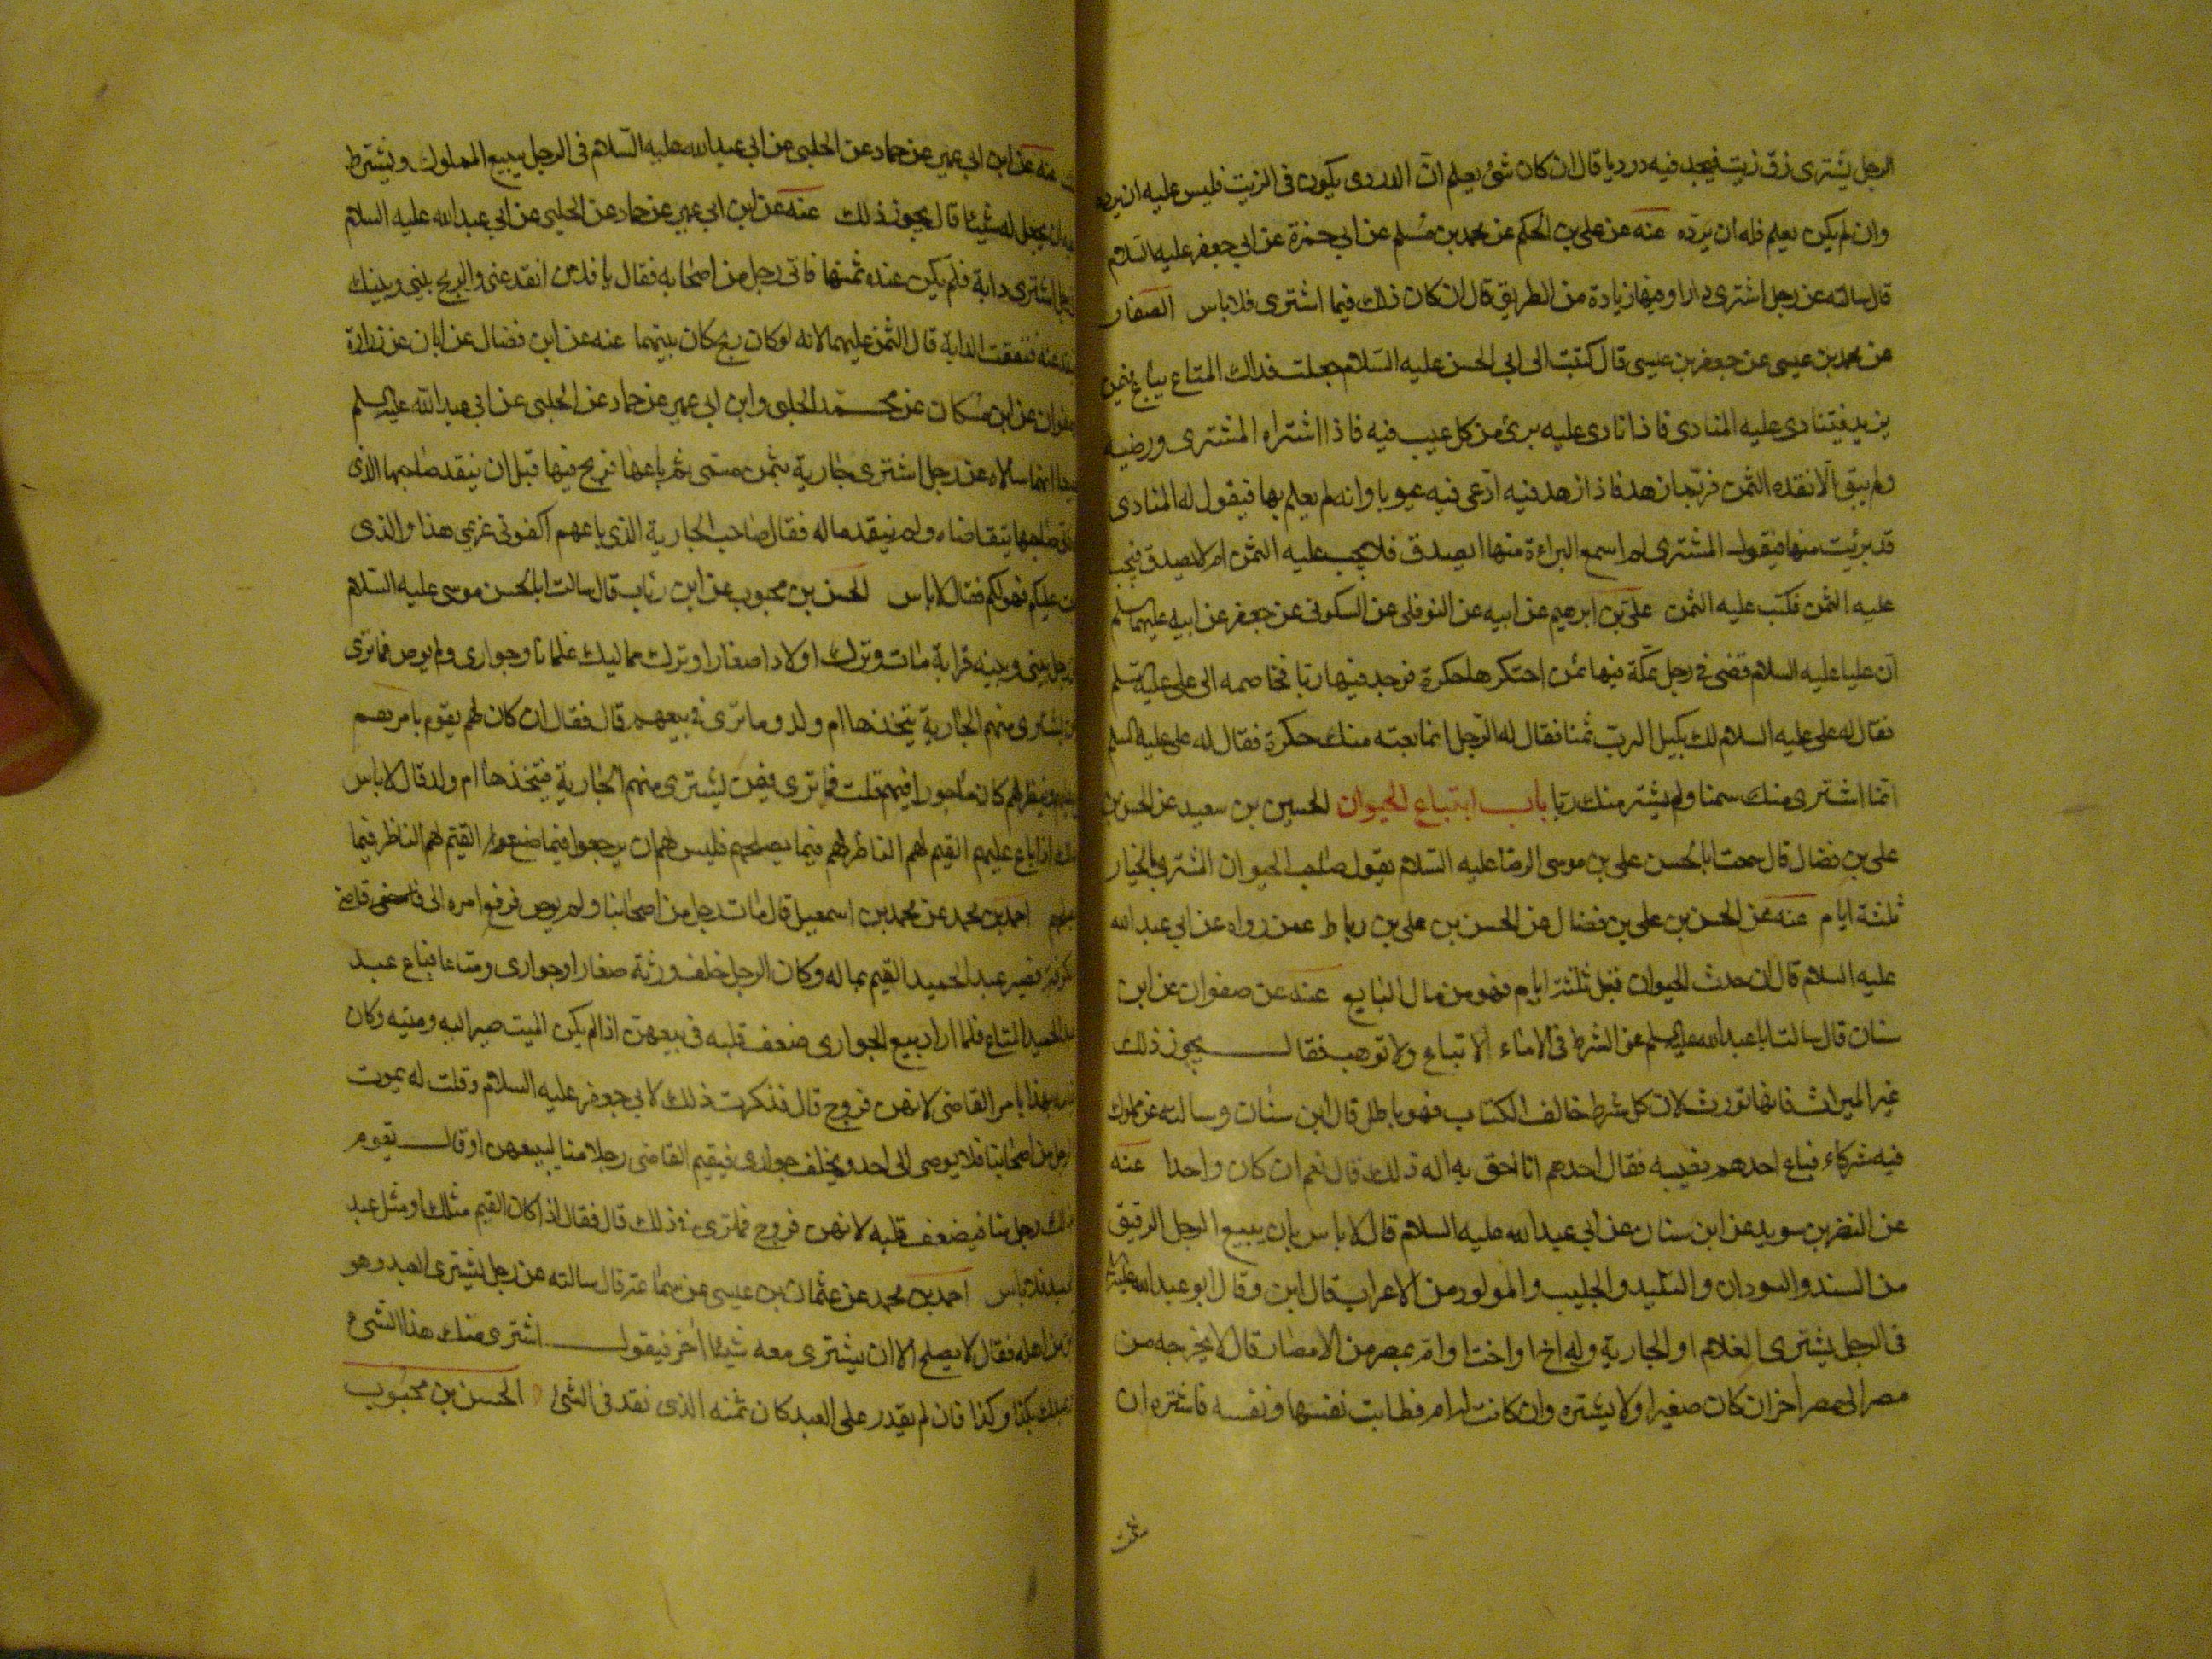 الرجل يشترى زق زيت فيجد فيه درديا قال ان كان شئ يعلم انّ الدردى يكون فى الزيت فليس عليه ان يرده
وان لم يكن يعلم فله ان يردّه عنه عن على بن الحكم عن محمد بن مسلم عن ابي حمزة عن ابي جعفر عليه السّلام
قال سالته عن رجل اشترى دارا وفيها زيادة من الطريق قال ان كان ذلك فيما اشترى فلا باس الصفار
عن محمد بن عيسى عن جعفر بن عيسى قال كتبت الى ابى الحسن عليه السّلام جعلت فداك المتاع يباع فيمن
يزيد فينادى عليه المنادى فاذا نادى عليه برئ من كل عيب فيه فاذا اشتراه المشترى ورضيه
ولم يبق الّا نقده الثمن فربّما زهد فاذا زهد فيه ادّعى فيه عيوبا وانه لم يعلم بها فيقول له المنادى
قد برئت منها فيقول المشترى لم اسمع البراءة منها ايصدق فلا يجب عليه الثمن ام لا يصدق فيجب
عليه الثمن فكتب عليه الثمن على بن ابرهيم عن ابيه عن النوفلى عن السكونى عن جعفر عن ابيه عليهما السلم
ان عليا عليه السلام قضى فى رجل عكة فيها سمن احتكرها حكرة فوجد فيها ربّا فخاصمه الى على عليه السلم
فقال له على عليه السلام لك بكيل الرب سمنا فقال له الرّجل انما بعته منك حكرة فقال له على عليه السلم
انما اشترى منك سمنا ولم يشتر منك ربّا باب ابتياع الحيوان الحسين بن سعيد عن الحسن بن
على بن فضال قال سمعت ابا الحسن على بن موسى الرضا عليه السّلام يقول صاحب الحيوان المشترى بالخيار
ثلثة ايام عنه عن الحسن بن على بن فضال عن الحسن بن على بن رباط عمن رواه عن ابي عبد الله
عليه السلام قال ان حدث الحيوان قبل ثلثة ايام فهو من مال البايع عنه عن صفوان عن ابن
سنان قال سالت ابا عبد الله عليه السلم عن الشرط فى الاماء الا تباع ولا توهب فقال يجوز ذلك
غير الميراث فانها تورث لان كل شرط خالف الكتاب فهو باطل قال ابن سنان وسالته عن مملوك
فيه شركاء فباع احدهم نصيبه فقال احدهم انا احق به اله ذلك قال نعم ان كان واحدا عنه
عن النضر بن سويد عن ابن سنان عن ابي عبد الله عليه السلام قال لا باس بان يبيع الرجل الرقيق
من السند والسودان والتليد والجليب والمولود من الاعراب قال ابن وقال ابو عبد الله عليه السلم
فى الرجل يشترى الغلام او الجارية وله اخ او اخت او امّ بمصر من الامصار قال لا يخرجه من
مصر الى مصر اخر ان كان صغيرا ولا يشتره وان كانت له ام فطابت نفسها ونفسه فاشتره ان
عنه عن ابن ابى عمير عن حماد عن الحلبى عن ابى عبد الله عليه السّلام فى الرجل يبيع المملوك ويشترط
يجعل له شيئا قال يجوز ذلك عنه عن ابن ابي عمير عن حماد عن الحلبى عن ابي عبد الله عليه السلام
اشترى دابة فلم يكن عنده ثمنها فاتى رجل من اصحابه فقال يا فلان انقد عنى والربح بينى وبينك
فنفقت الدابة قال الثمن عليهما لانه لو كان ربح كان بينهما عنه عن ابن فضال عن ابان عن زرارة
صفوان عن ابن مسكان عن محمّد الحلبى وابن ابى عمير عن حماد عن الحلبى عن ابى عبد الله عليه السلم
انهما سالاه عن رجل اشترى جارية بثمن مسمى ثم باعها فربح فيها قبل ان ينقد صاحبها الذى
صاحبها يتقاضاه ولم ينقد ماله فقال صاحب الجارية الذى باعهم اكفونى غريمى هذا والذى
عليكم فهو لكم فقال لا باس الحسن بن محبوب عن ابن رياب قال سالت ابا الحسن موسى عليه السّلام
بينى وبينه قرابة مات وترك اولادا صغارا وترك مماليك غلمانا وجوارى ولم يوص فما ترى
يشترى منهم الجارية يتخذها ام ولد وما ترى فى بيعهم قال فقال ان كان لهم يقوم بامرهم
وينظر لهم كان ماجورا فيهم قلت فما ترى فيمن يشترى منهم الجارية فيتخذها ام ولد قال لا باس
اذا باع عليهم القيم لهم الناظر لهم فيما يصلحهم فليس لهم ان يرجعوا فيما صنع القيّم لهم الناظر فيما
احمد بن محمد عن محمد بن اسمعيل قال مات رجل من اصحابنا ولم يوص فرفع امره الى قاضى
فصير عبد الحميد القيم بماله وكان الرجل خلف ورثة صغارا وجوارى ومتاعا فباع عبد
الحميد المتاع فلما اراد بيع الجوارى ضعف قلبه فى بيعهن اذ لم يكن الميت صير اليه وصيته وكان
بهذا بامر القاضى لانهن فروج قال فذكرت ذلك لابى جعفر عليه السلام وقلت له يموت
الرجل من اصحابنا فلا يوصى الى احد ويخلف جوارى فيقيم القاضى رجلا منا ليبيعهن او قال يقوم
بذلك رجل منا فيضعف قلبه لانهن فروج فما ترى فى ذلك قال فقال اذا كان القيم مثلك او مثل عبد
الحميد فلا باس احمد بن محمد عن عثمان بن عيسى عن سماعة قال سالته عن رجل يشترى العبد وهو
آبق من اهله فقال لا يصلح الا ان يشترى معه شيئا اخر فيقول اشترى منك هذا الشئ
وعبدك بكذا وكذا فان لم يقدر على العبد كان ثمنه الذى نقد فى الشئ الحسن بن محبوب